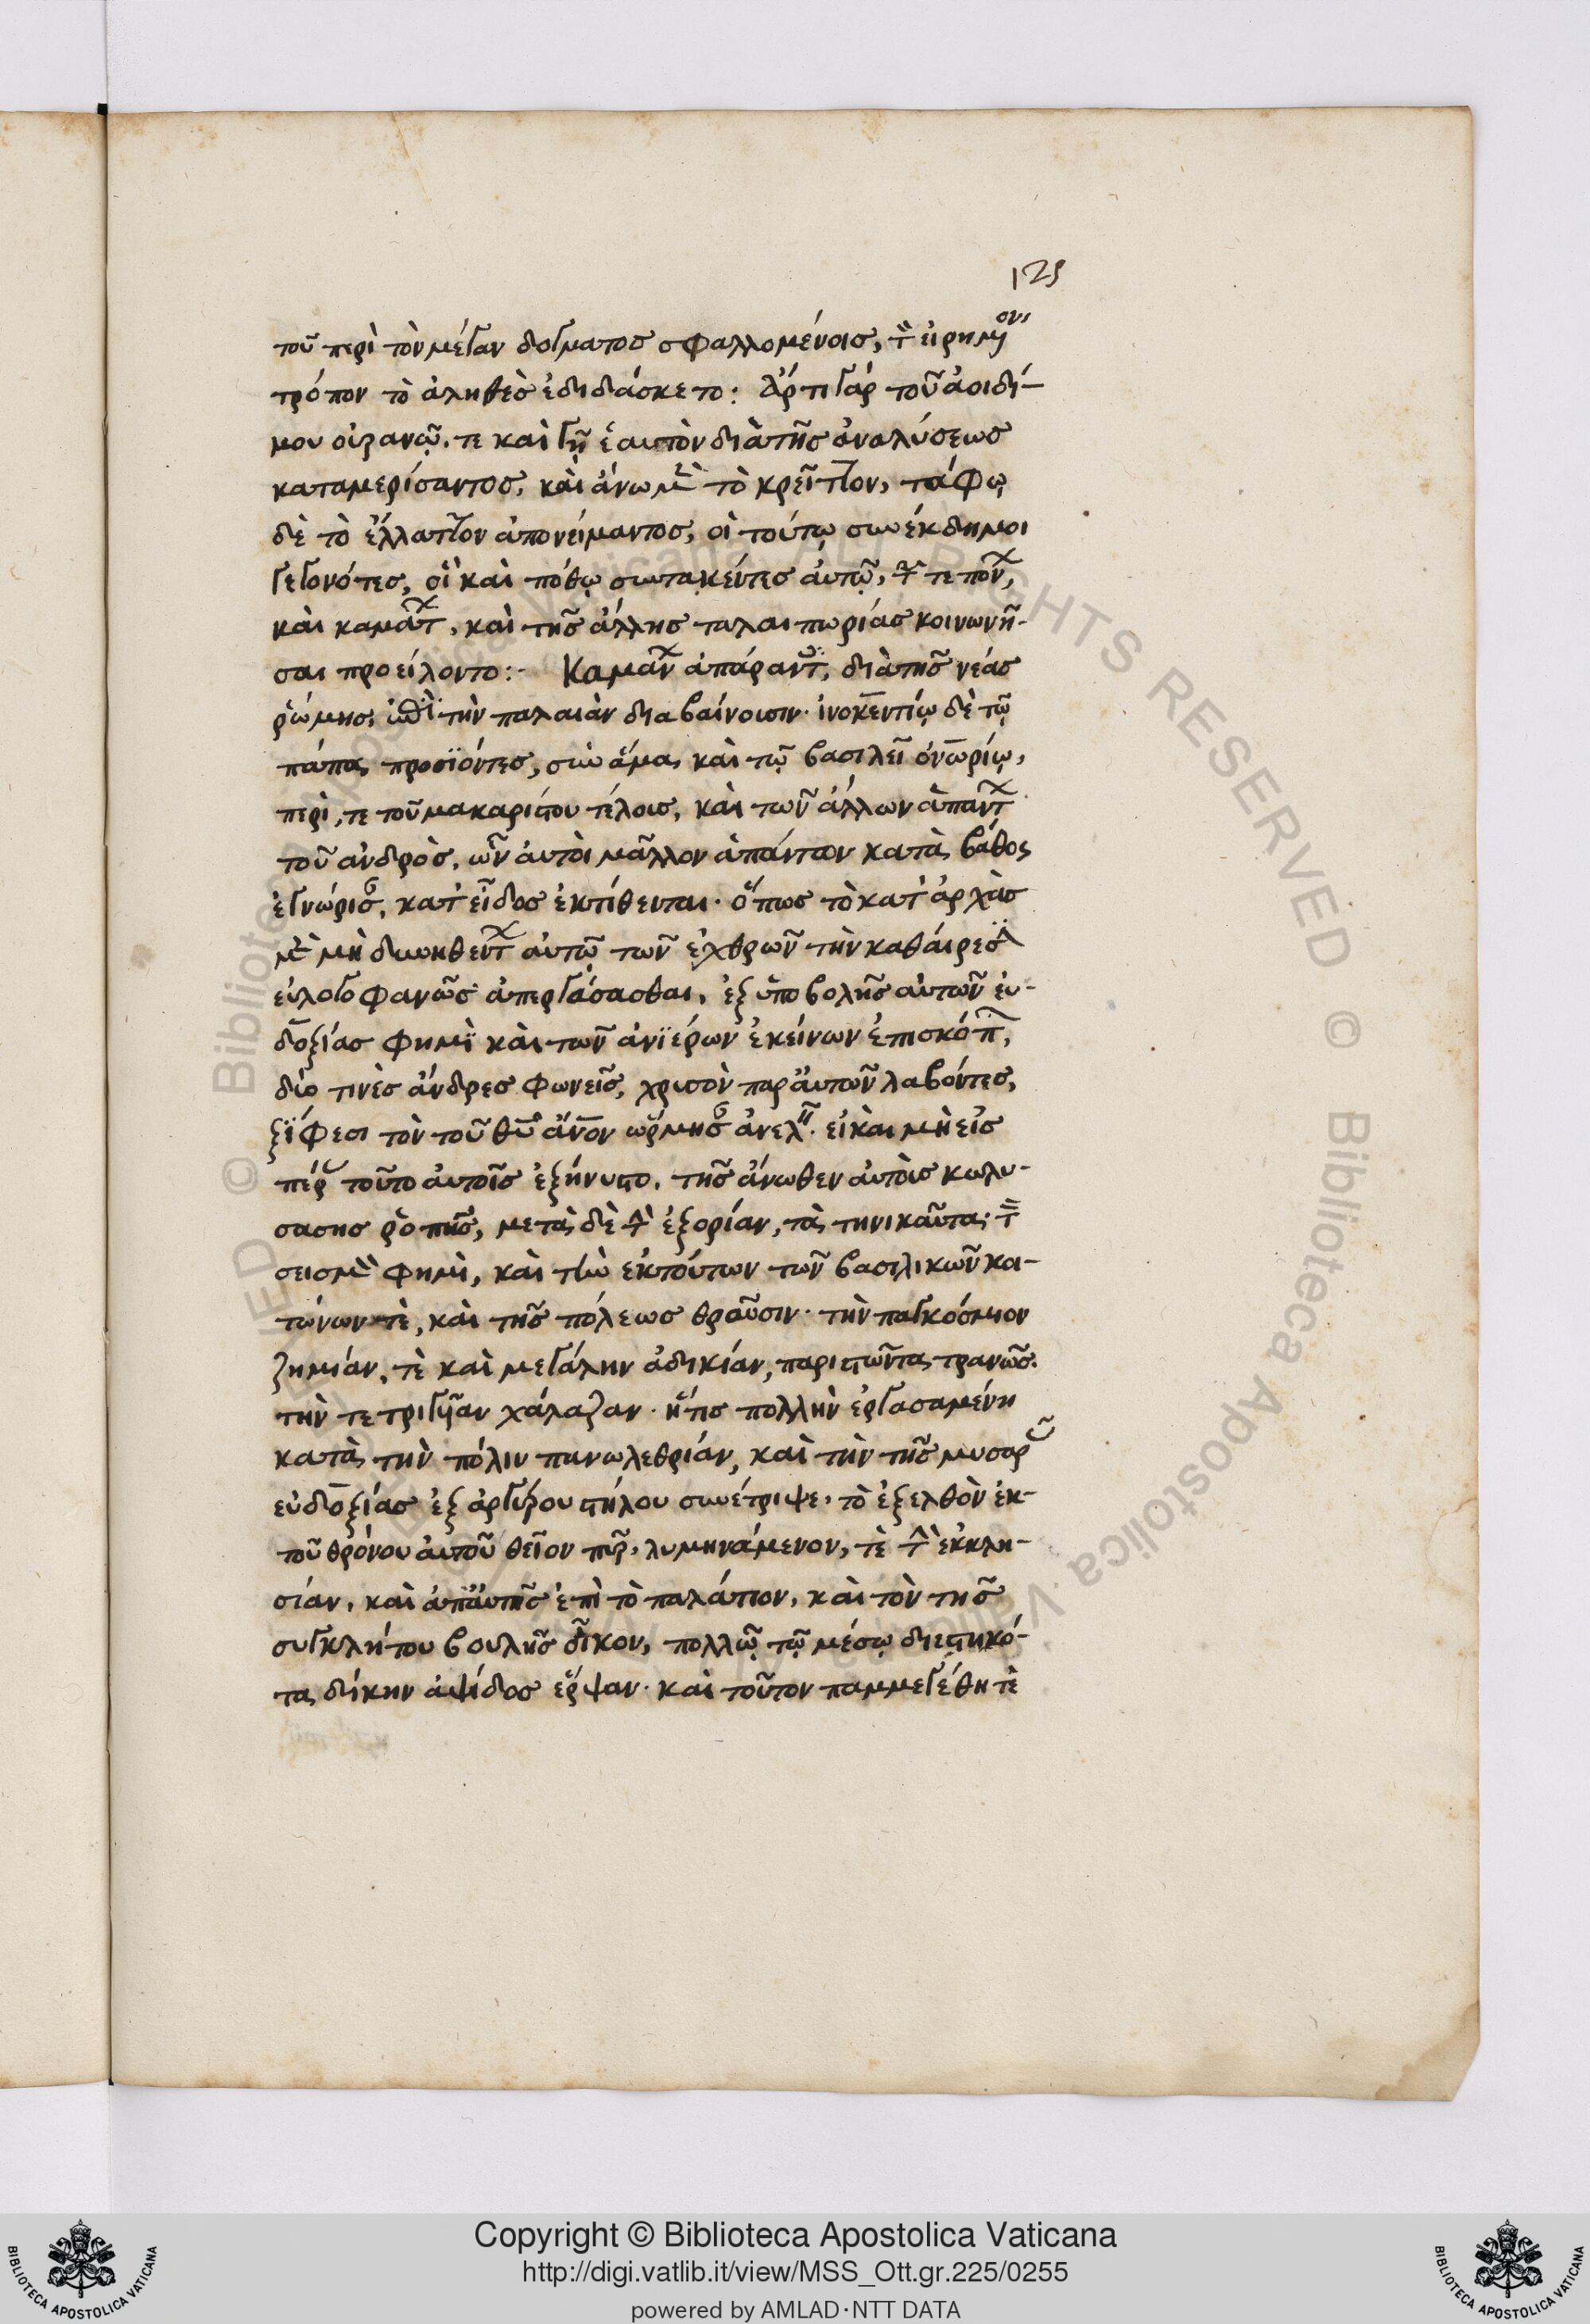 125
τοῦ περὶ τὸν μέγαν δόγματος σφαλλομένοις, τὸν εἰρημένον
τρόπον τὸ ἀληθὲς ἐδιδάσκετο: Ἄρτι γὰρ τοῦ ἀοιδί-
μου οὐρανῷ. τε καὶ γῇ ἑαυτὸν διὰ τῆς ἀναλύσεως
καταμερίσαντος, καὶ ἄνω μὲν τὸ κρεῖττον, τάφῳ
δὲ τὸ ἔλλαττον ἀπονείμαντος, οἱ τούτῳ συνέκδημοι
γεγονότες, οἳ καὶ πόθῳ συντακέντες αὐτῷ, τῶν τε πόνων,
καὶ καμάτων, καὶ τῆς ἄλλης ταλαιπωρίας κοινωνῆ-
σαι προείλοντο:- Κομάνων ἀπάραντες, διὰ τῆς νέας
ῥώμης, ἐπὶ τὴν παλαιὰν διαβαίνουσιν· ἰνοκεντίῳ δὲ τῷ
πάπα προσϊόντες, σὺν ἅμα καὶ τῷ βασιλεῖ ὀνωρίῳ,
περὶ, τε τοῦ μακαρίτου τέλους, καὶ τῶν ἄλλων ἁπάντων
τοῦ ἀνδρὸς, ὧν αὐτοὶ μᾶλλον ἁπάντων κατὰ βάθος
ἐγνώρισαν, κατ' εἶδος ἐκτίθενται· ὅπως τὸ κατ' ἀρχὰς
μὲν μὴ δυνηθέντων αὐτῷ τῶν ἐχθρῶν τὴν καθαίρεσιν
εὐλογοφανῶς ἀπεργάσασθαι, ἐξ ὑποβολῆς αὐτῶν εὐ-
δοξίας φημὶ καὶ τῶν ἀνϊέρων ἐκείνων ἐπισκόπων,
δύο τινὲς ἄνδρες φονεῖς, χρυσὸν παρ' αὐτῶν λαβόντες,
ξίφεσι τὸν τοῦ θυ ἄνον ὥρμησαν ἀνελεῖν· εἰ καὶ μὴ εἰς
πέρας τοῦτο αὐτοῖς ἐξήνυστο, τῆς ἄνωθεν αὐτοὺς κωλυ-
σάσης ῥοπῆς, μετὰ δὲ τὴν ἐξορίαν, τὰ τηνικαῦτα· τὸν
σεισμὸν φημὶ, καὶ τὴν ἐκ τούτων τῶν βασιλικῶν κοι-
τώνων τὲ, καὶ τῆς πόλεως θραῦσιν· τὴν παγκόσμιον
ζημίαν, τὲ καὶ μεγάλην ἀδικίαν, παριστῶντα τρανῶς.
τὴν τε τριγῆαν χάλαζαν· ἥτις πολλὴν ἐργασαμένη
κατὰ τὴν πόλιν πανωλεθρίαν, καὶ τὴν τῆς μυσαρᾶς
εὐδοξίας ἐξ ἀργύρου στήλου συνέτριψε· τὸ ἐξελθὸν ἐκ-
τοῦ θρόνου αὐτοῦ θεῖον πῦρ, λυμηνάμενον, τὲ τὴν ἐκκλη-
σίαν, καὶ ἀπ' αὐτῆς ἐπὶ τὸ παλάτιον, καὶ τὸν τῆς
συγκλήτου βουλῆς οἶκον, πολλῷ τῷ μέσῳ διεστηκό-
τα δίκην ἁψίδος ἕρψαν· καὶ τοῦτον παμμεγέθη τὲ
Copyright © Biblioteca Apostolica Vaticana
http://digi.vatlib.it/view/MSS_Ott.gr.225/0255
powered by AMLAD·NTT DATA